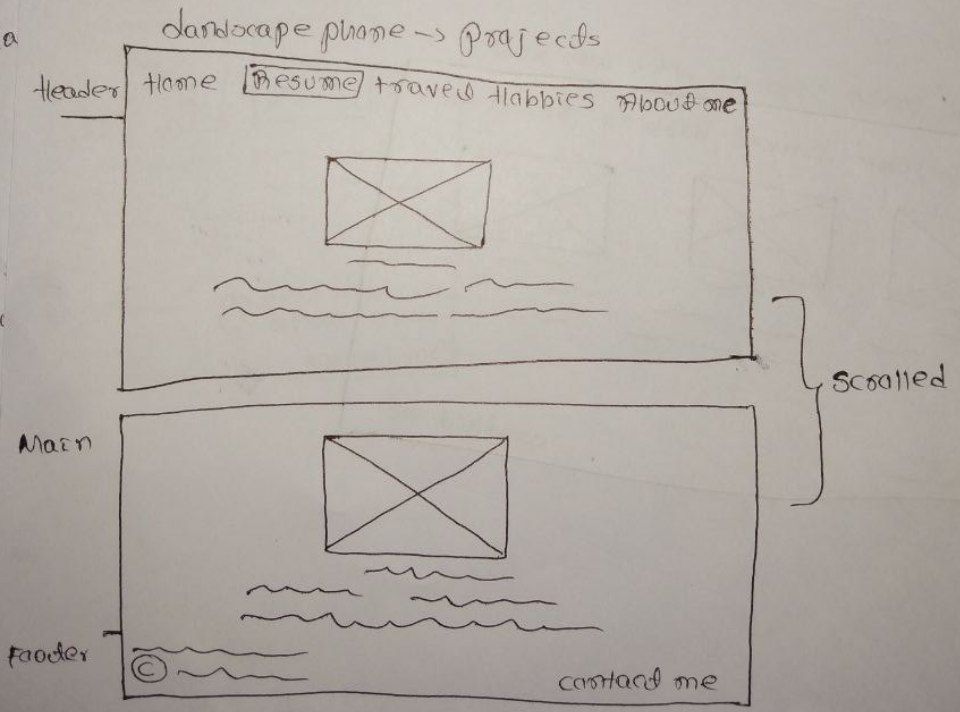 a
Landscape phone -> Projects
Header
Home Resume travel Hobbies About me
Scrolled
Main
Footer
© contact me